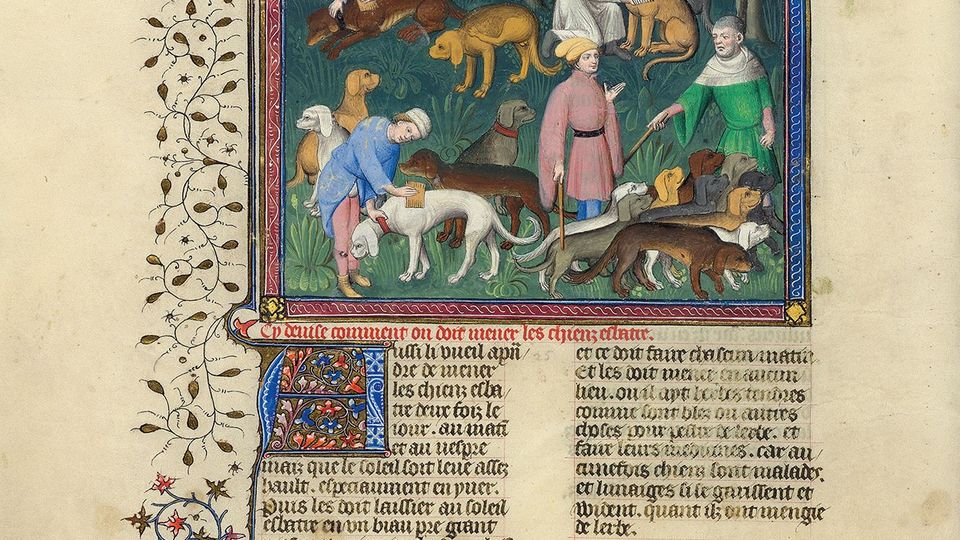 Cy devise comment on doit mener les chienz esbatre.
Aussi li vueil apren
dre de mener
les chienz esba
tre deux foiz le
iour. au matin
et au vespre
maiz que le soleil soit leve assez
hault. especiaument en yver.
Puis les doit laissier au soleil
esbatre en un biau pre grant
et ce doit faire chascun matin
Et les doit mener en aucun
lieu. ou il ayt herbes tendres
comme sont blez ou autres
choses pour pestre de lerbe. et
faire leurs medicines. car au
cunefois chienz sont malades.
et lunaiges si se garissent et
wident. quant ilz ont mengie
de lerbe.